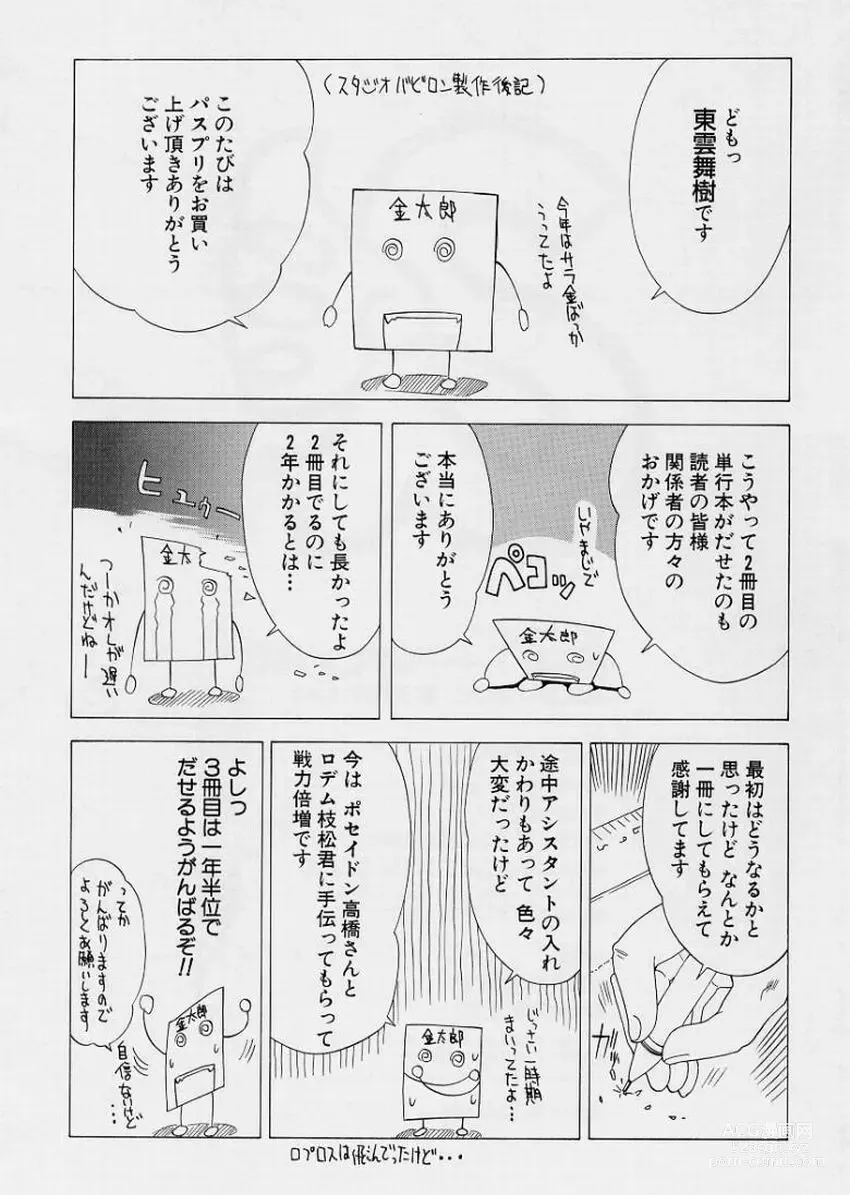 (スタジオバビロン製作後記)
どもっ
東雲舞樹です
このたびは
パスプリをお買い
上げ頂きありがとう
ございます
金太郎
今年はサラ金ばっか
うってたよ
こうやって2冊目の
単行本がだせたのも
読者の皆様
関係者の方々の
おかげです
いやまじで
ペコッ
本当にありがとう
ございます
金太郎
それにしても長かったよ
2冊目でるのに
2年かかるとは…
ヒュゥー
金太
つーかオレが遅い
んだけどねー
最初はどうなるかと
思ったけど なんとか
一冊にしてもらえて
感謝してます
ガリ
途中アシスタントの入れ
かわりもあって 色々
大変だったけど
今は ポセイドン高橋さんと
ロデム枝松君に手伝ってもらって
戦力倍増です
金太郎
じっさい一時期
まいってたよ…
よしっ
3冊目は一年半位で
だせるようがんばるぞ!!
ってか
がんばりますので
よろしくお願いします
金太郎
自信ないけど
…
ロプロスは飛んでったけど・・・